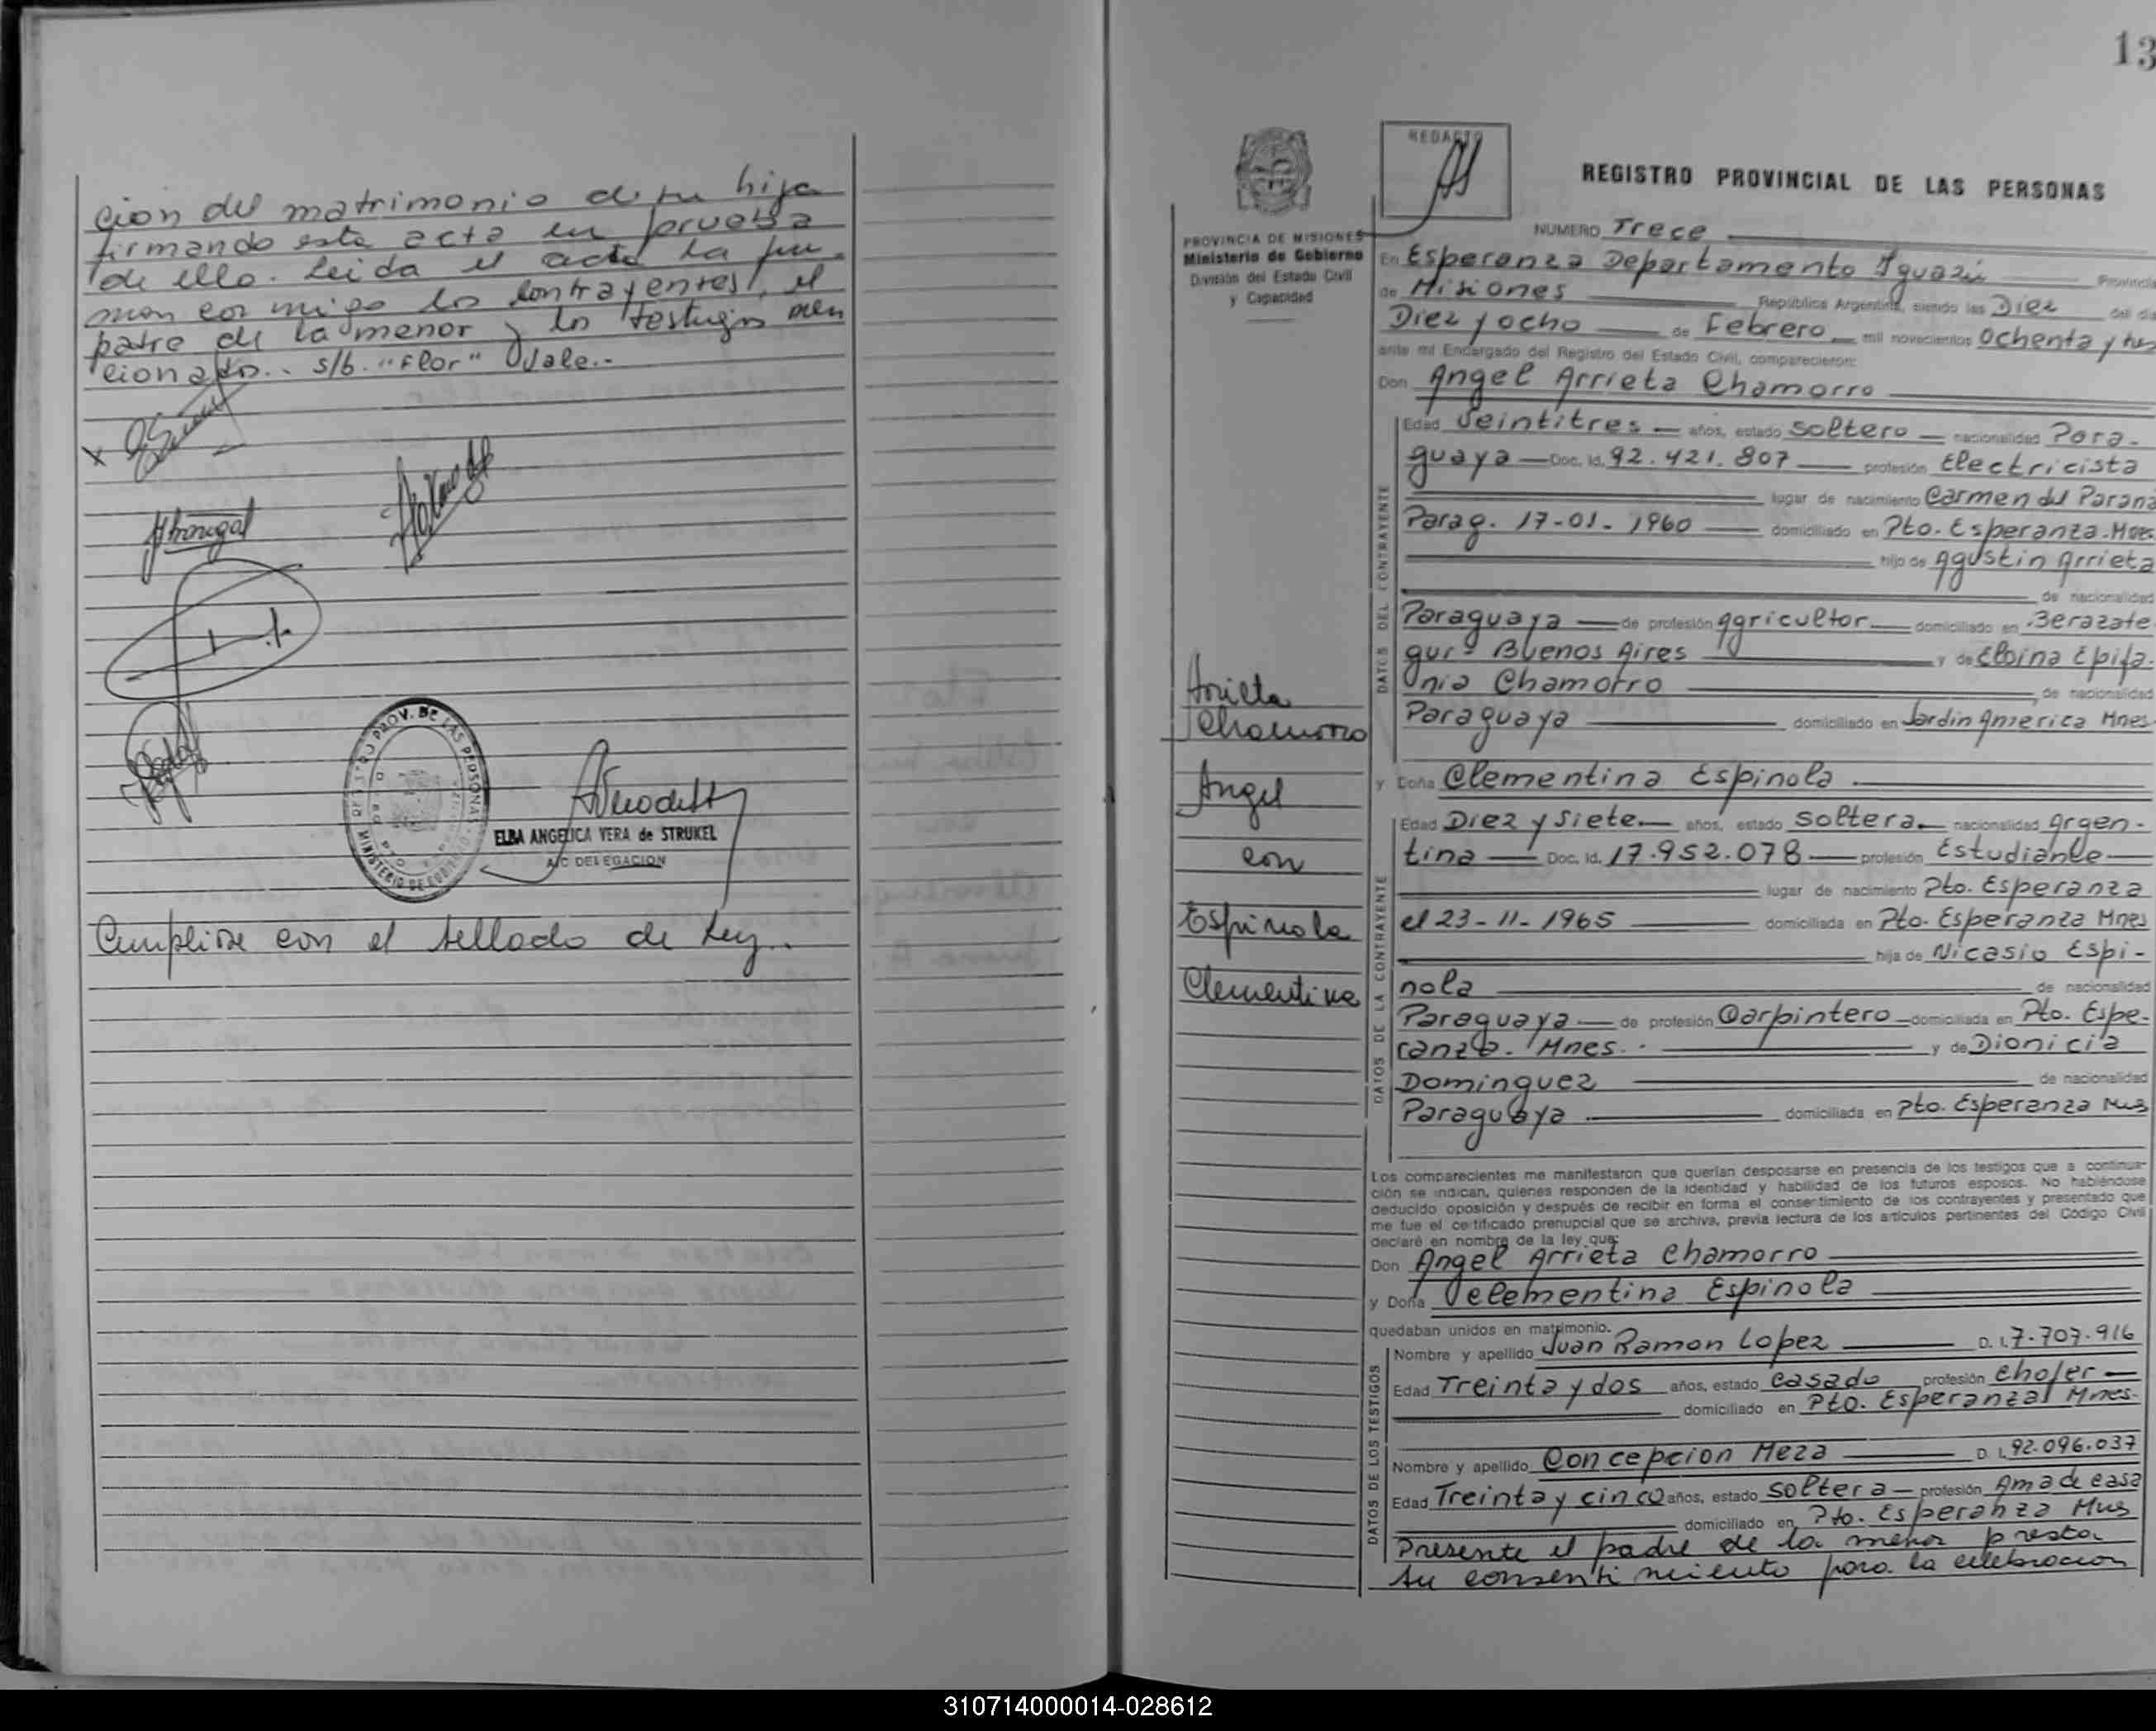 cion del matrimonio de su hija
firmando esta acta en prueba
de ello. Leida el acta la fir
man conmigo los contrayentes, el
padre de la menor y los testigos men
cionados.. s/b. "Flor" Vale.-
REGISTRO PROV. DE LAS PERSONAS
MINISTERIO DE GOBIERNO
ELBA ANGELICA VERA de STRUKEL
A/C DELEGACION
Cumplirse con el sellado de Ley..
13
REDACTO
REGISTRO PROVINCIAL DE LAS PERSONAS
PROVINCIA DE MISIONES
Ministerio de Gobierno
División del Estado Civil
y Capacidad
Arrieta
Chamorro
Angel
con
Espinola
Clementina
NUMERO Trece
En Esperanza Departamento Iguazú Provincia
de Misiones República Argentina, siendo las Diez del día
Diez y ocho de Febrero mil novecientos Ochenta y tres
ante mi Encargado del Registro del Estado Civil, comparecieron:
Don Angel Arrieta Chamorro
DATOS DEL CONTRAYENTE
Edad Veintitres años, estado Soltero nacionalidad Para-
guaya Doc. Id. 92.421.807 profesión Electricista
lugar de nacimiento Carmen del Paraná
Parag. 17-01-1960 domiciliado en Pto. Esperanza. Mnes
hijo de Agustin Arrieta
de nacionalidad
Paraguaya de profesión Agricultor domiciliado en Berazate
gui- Buenos Aires y de Eloina Epifa-
nia Chamorro de nacionalidad
Paraguaya domiciliado en Jardin America Mnes-
y Doña Clementina Espinola
DATOS DE LA CONTRAYENTE
Edad Diez y Siete años, estado Soltera nacionalidad Argen-
tina Doc. Id. 17.952.078 profesión Estudiante
lugar de nacimiento Pto. Esperanza
el 23-11-1965 domiciliada en Pto. Esperanza Mnes
hija de Nicasio Espi-
nola de nacionalidad
Paraguaya de profesión Carpintero domiciliada en Pto. Espe-
ranza. Mnes. y de Dionicia
Dominguez de nacionalidad
Paraguaya domiciliada en Pto. Esperanza Mns
Los comparecientes me manifestaron que querían desposarse en presencia de los testigos que a continua-
ción se indican, quienes responden de la identidad y habilidad de los futuros esposos. No habiéndose
deducido oposición y después de recibir en forma el consertimiento de los contrayentes y presentado que
me fue el certificado prenupcial que se archiva, previa lectura de los artículos pertinentes del Código Civil
declaré en nombre de la ley que:
Don Angel Arrieta Chamorro
y Doña Clementina Espinola
quedaban unidos en matrimonio.
DATOS DE LOS TESTIGOS
Nombre y apellido Juan Ramon Lopez D. I. 7.707.916
Edad Treinta y dos años, estado Casado profesión Chofer
domiciliado en Pto. Esperanza Mnes-
Nombre y apellido Concepcion Meza D I. 92.096.037
Edad Treinta y cinco años, estado Soltera profesión Ama de casa
domiciliado en Pto. Esperanza Mns
Presente el padre de la menor presta
su consentimiento para la celebracion
310714000014-028612